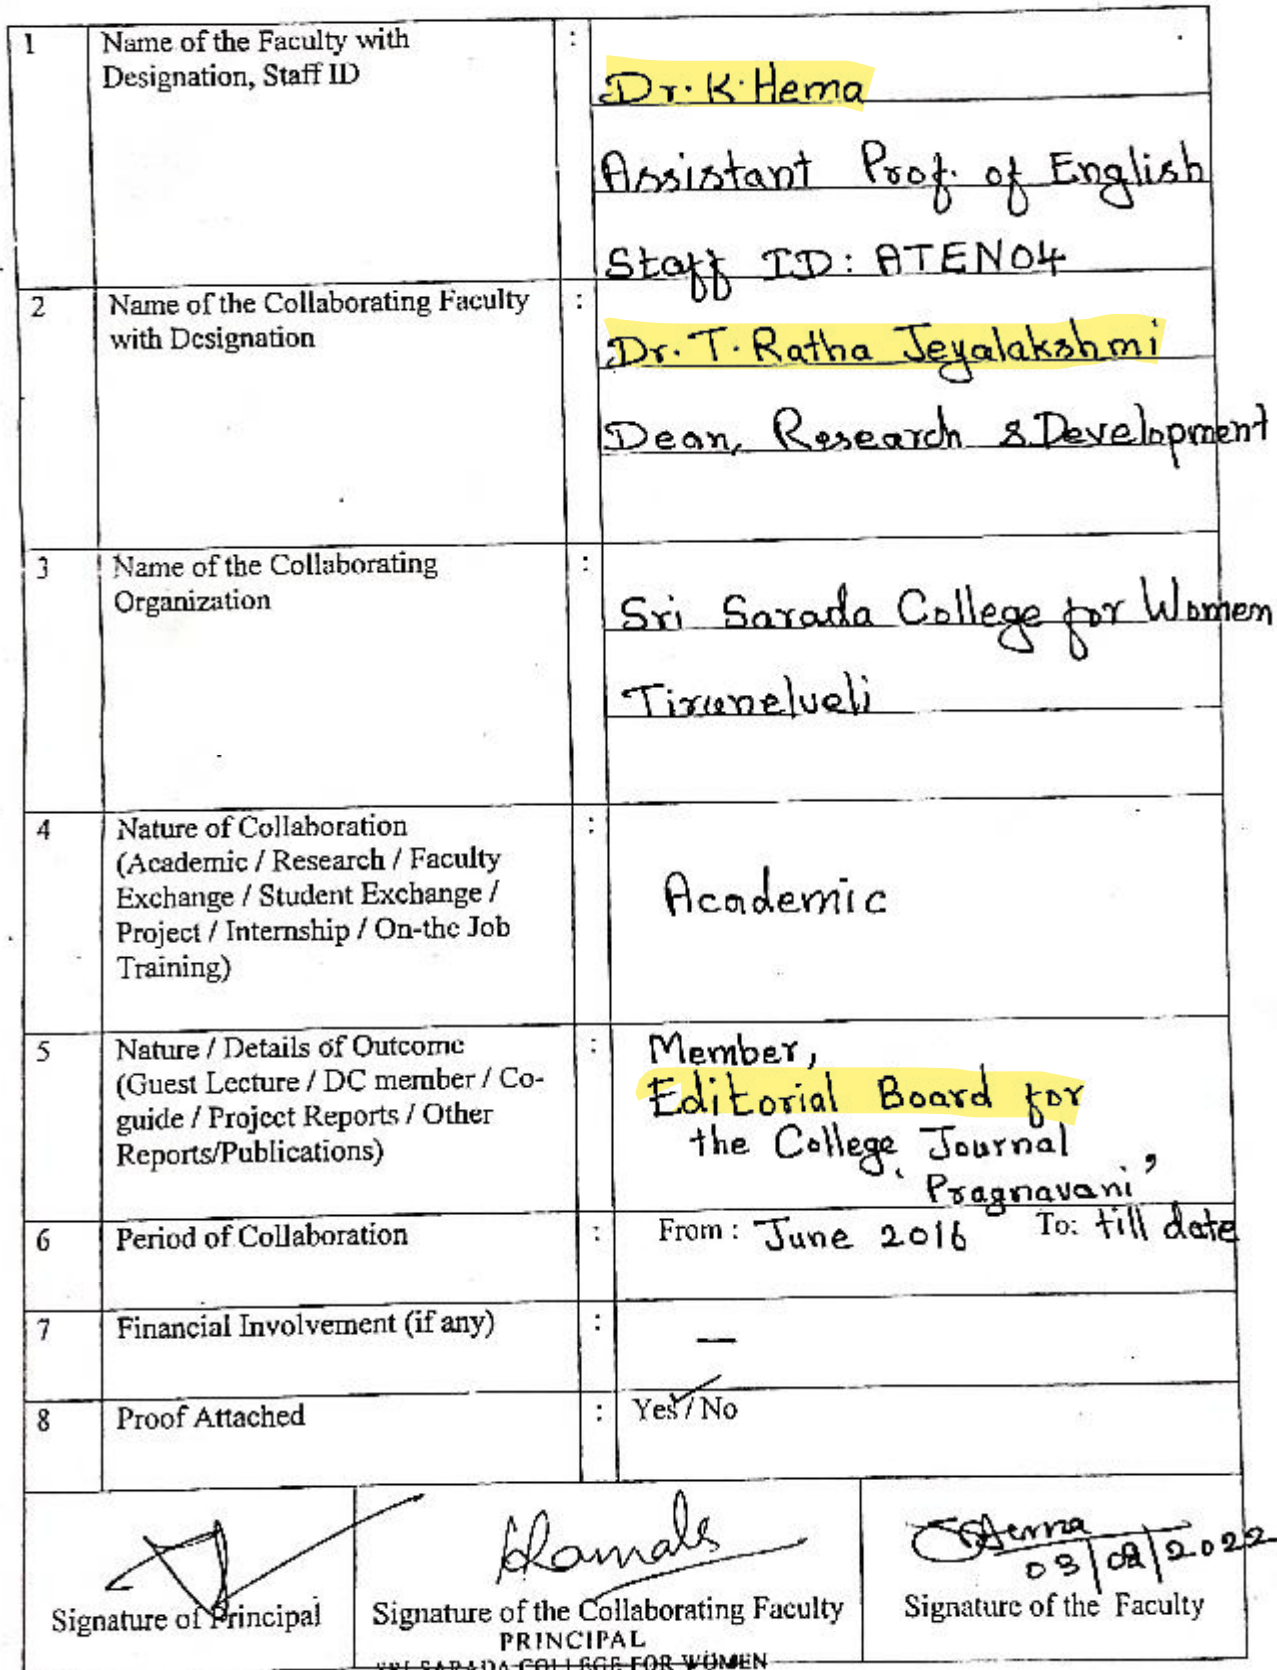 1 Name of the Faculty with :
Designation, Staff ID
Dr. K. Hema
Assistant Prof. of English
Staff ID: ATEN04
2 Name of the Collaborating Faculty :
with Designation
Dr. T. Ratha Jeyalakshmi
Dean, Research & Development
3 Name of the Collaborating :
Organization
Sri Sarada College for Women
Tirunelveli
4 Nature of Collaboration :
(Academic / Research / Faculty
Exchange / Student Exchange /
Project / Internship / On-the Job
Training)
Academic
5 Nature / Details of Outcome :
(Guest Lecture / DC member / Co-
guide / Project Reports / Other
Reports/Publications)
Member,
Editorial Board for
the College Journal
'Pragnavani'
6 Period of Collaboration : From : June 2016 To: till date
7 Financial Involvement (if any) : —
8 Proof Attached : Yes / No
Hema
2022
Signature of Principal
Signature of the Collaborating Faculty
Signature of the Faculty
PRINCIPAL
SRI SARADA COLLEGE FOR WOMEN